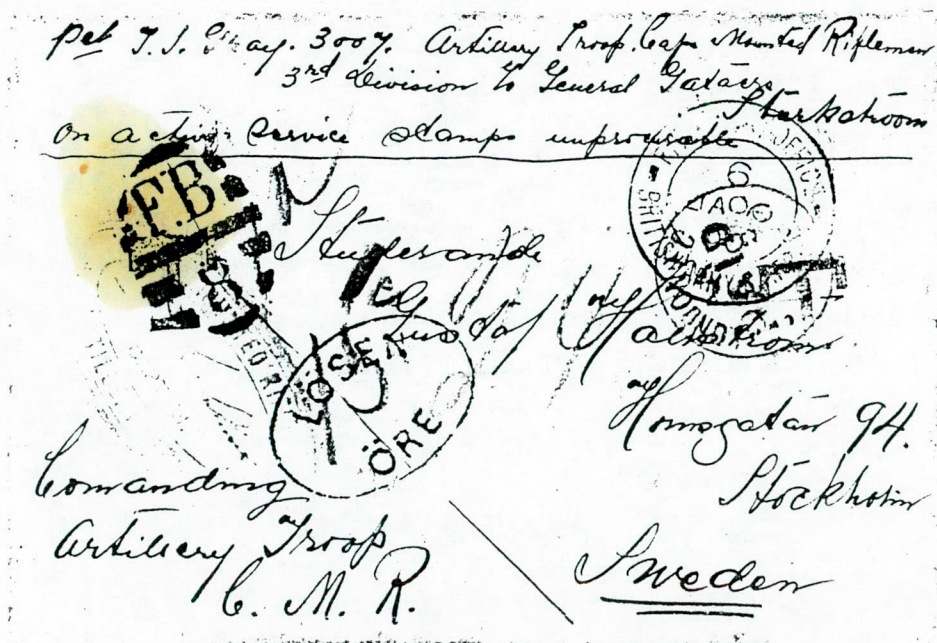 Pet T. J. Gray. 3007. Artillery Troop. Cape Mounted Rifleman
3rd Division to General Gatacre
Sterkstroom
On active Service Stamps unprocurable
F.B
Studerande
Gustaf Hallstrom
LÖSEN
ÖRE
Hornsgatan 94.
Stockholm
Sweden
Comanding
Artillery Troop
C. M. R.